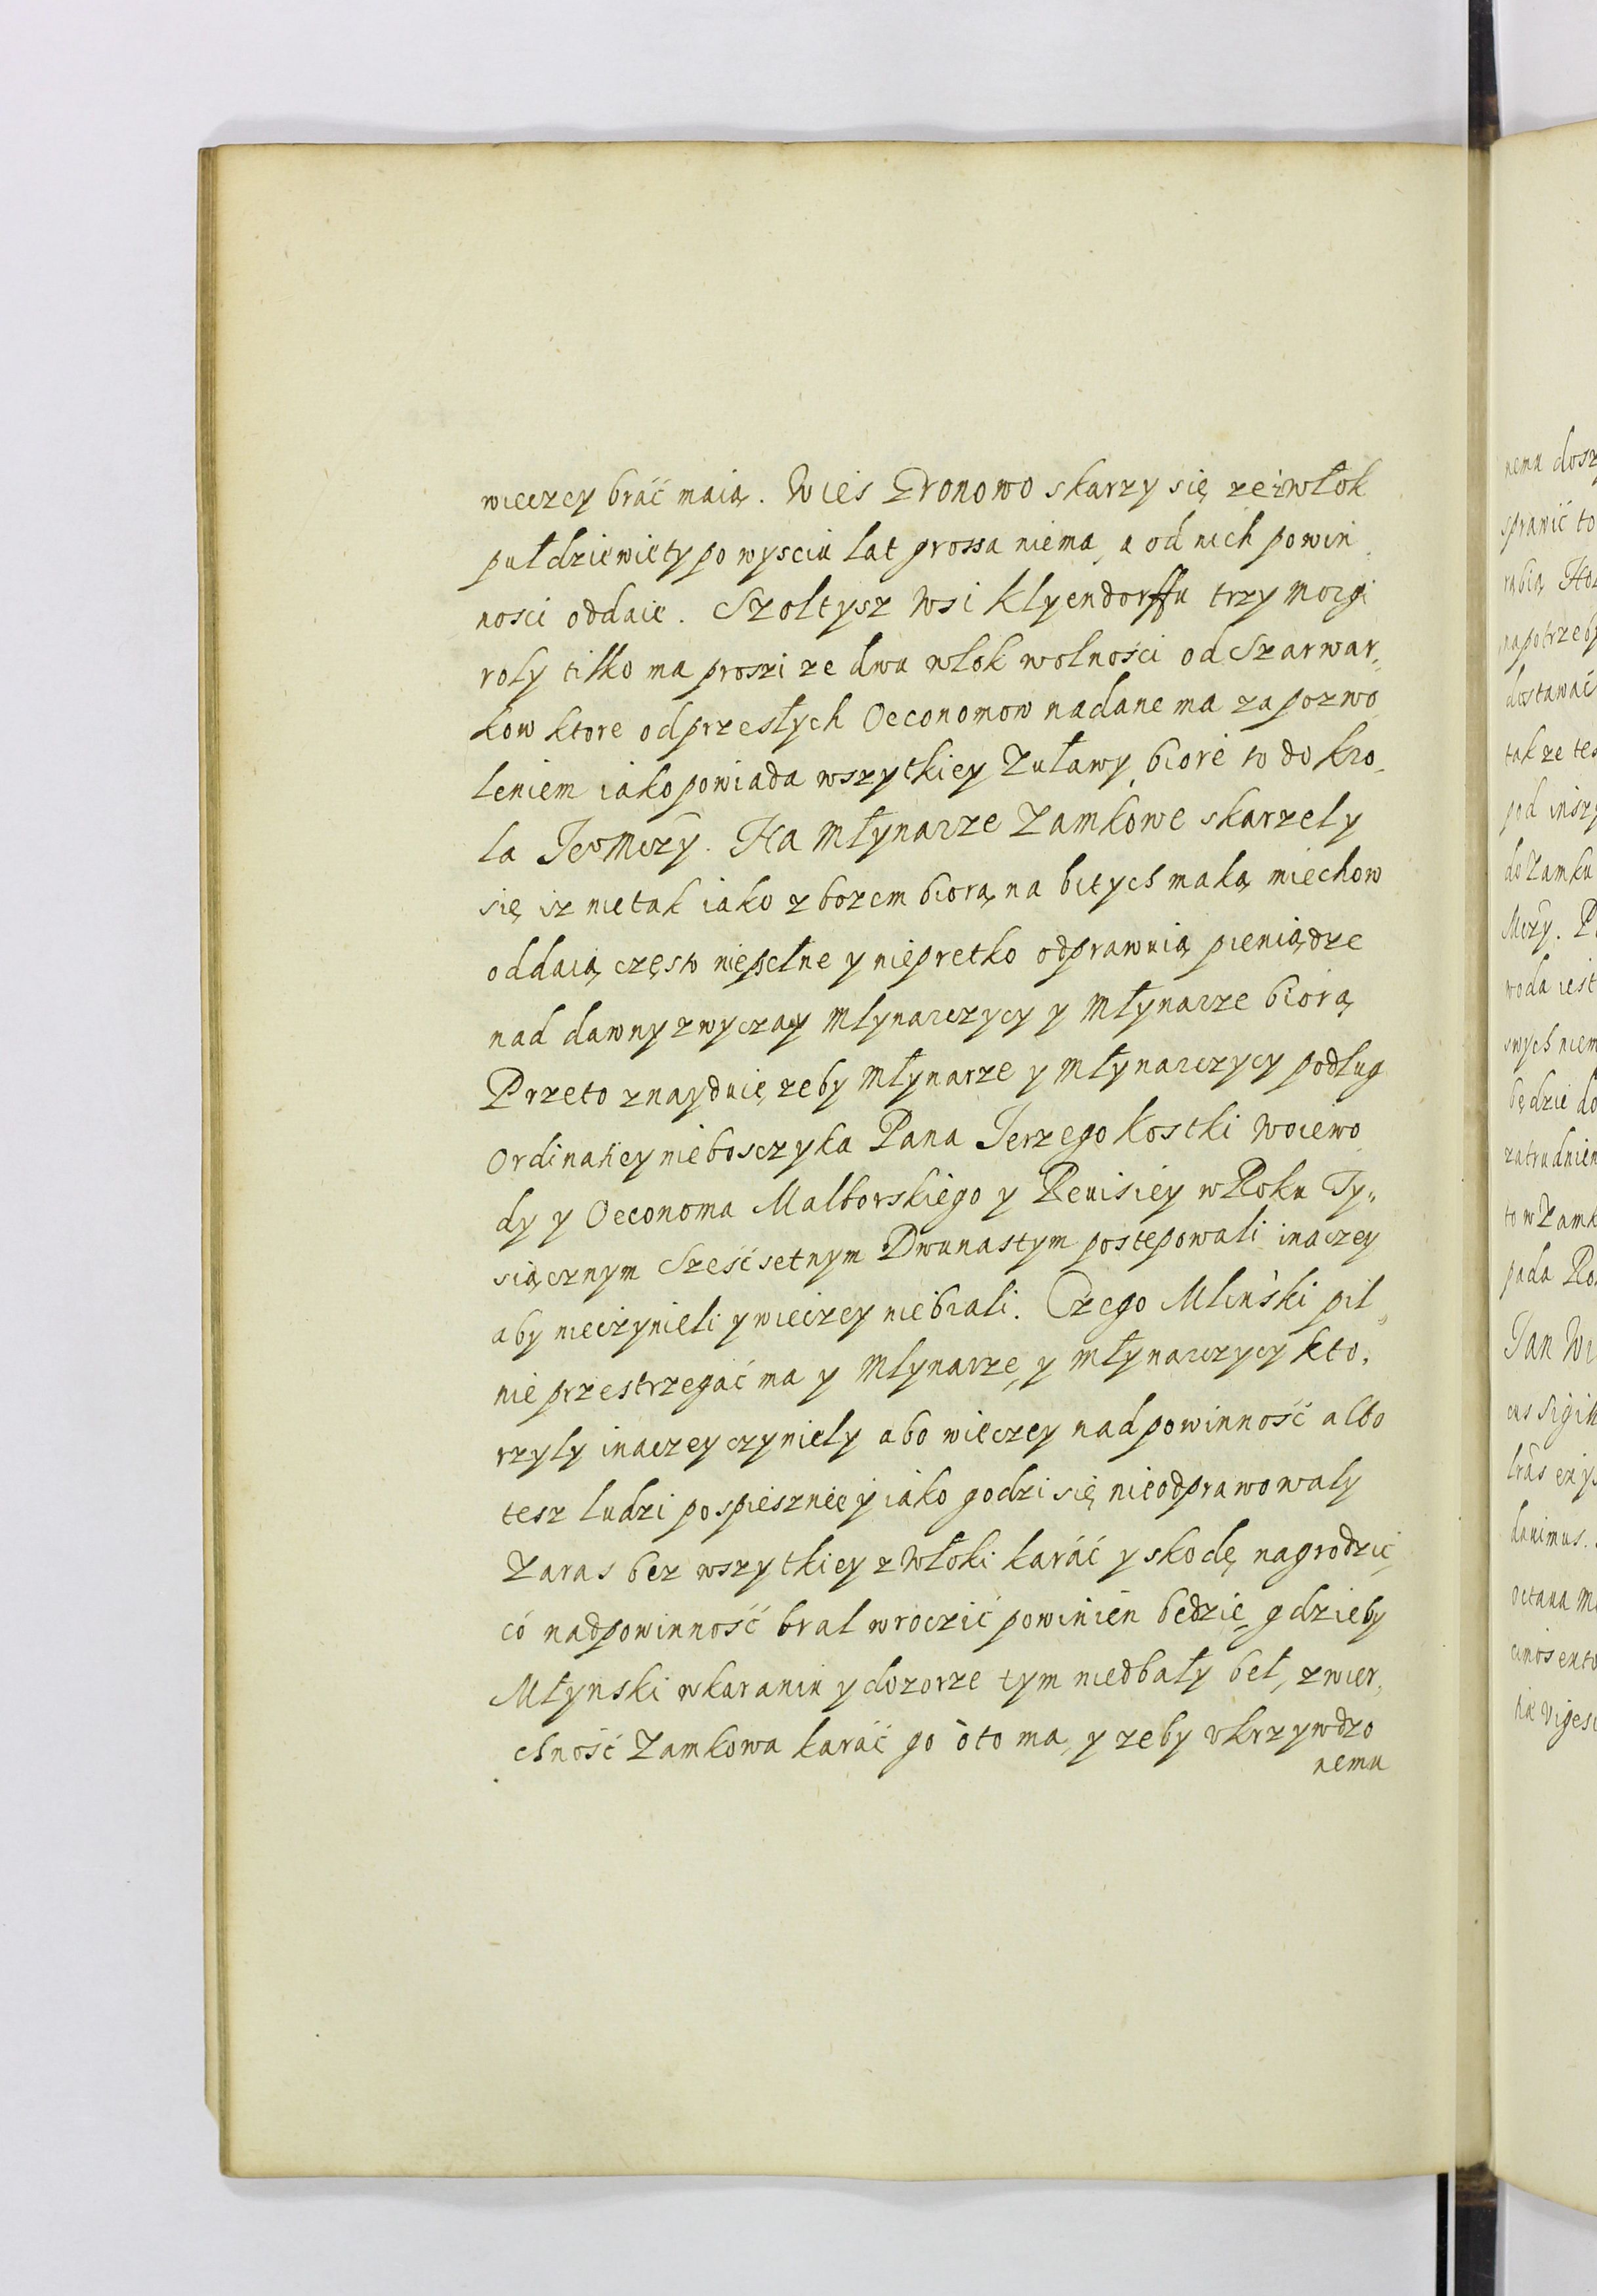 wieczey brać maią. Wieś Dronowo skarzy się zeżwłok
pułdziewięty po wysciu lat grossa niema, a od nich powin„
nosci oddaie. Szołtysz Wsi Klyendorffu trzy morgi
roly tilko ma proszi ze dwu włok wolności od Szarwar„
kow ktore od przesłych Oeconomow nadane ma za pozwo„
leniem iako powiada wszytkiey Zuławy, biorę to do Kro„
la Jeo Mczy. Na Młynarze Zamkowe skarzely
się isz nie tak iako z bozem biorą, na bitych mąką miechow
oddaią, często niepełne y niepretko odprawuią, pieniądze
nad dawny zwyczay młynarczycy y Młynarze biorą
Przeto znayduię, zeby Młynarze y młynarczycy podług
Ordinatiey nieboszczyka Pana Jerzego Kostki Woiewo„
dy y Oeconoma Malborskiego y Reuisiey w Roku Ty„
siącznym Sześćsetnym Dwunastym postępowali inaczey
aby nieczynieli y wieczey niebrali. Czego Mlinski pil„
nie przestrzegać ma y Młynarze, y młynarczycy kto„
rzyly inaczey czyniely abo wieczey nad powinność albo
tesz ludzi pospiesznięy iako godzi się nieodprawowaly
Zaras bez wszytkiey zwłoki karáć y skodę nagrodzić,
có nadpowinność brał wroczić powinien będzie, gdzieby
Młynski w karaniu y dozorze tym niedbały beł, zwier„
chność Zamkowa karáć go o to ma, y zeby vkrzywdzo
nemu
nemu dosz
sprawić to
rąbią
na potrzeby
dostawać
takze tes
pod inszy
do Zamku
Mczy. P
woda iest
swych niem
będzie do
zatrudnien
to w Zamk
pada Ro
Jan Wi
cus Sigil
daninus.
octaua M